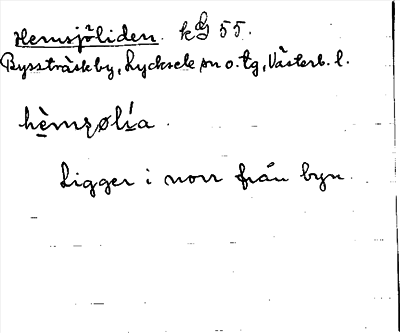 Hemsjöliden. kG 55.
Byssträsk by, Lycksele sn o. tg, Västerb. l.
hèmʂølía.
Ligger i norr från byn.